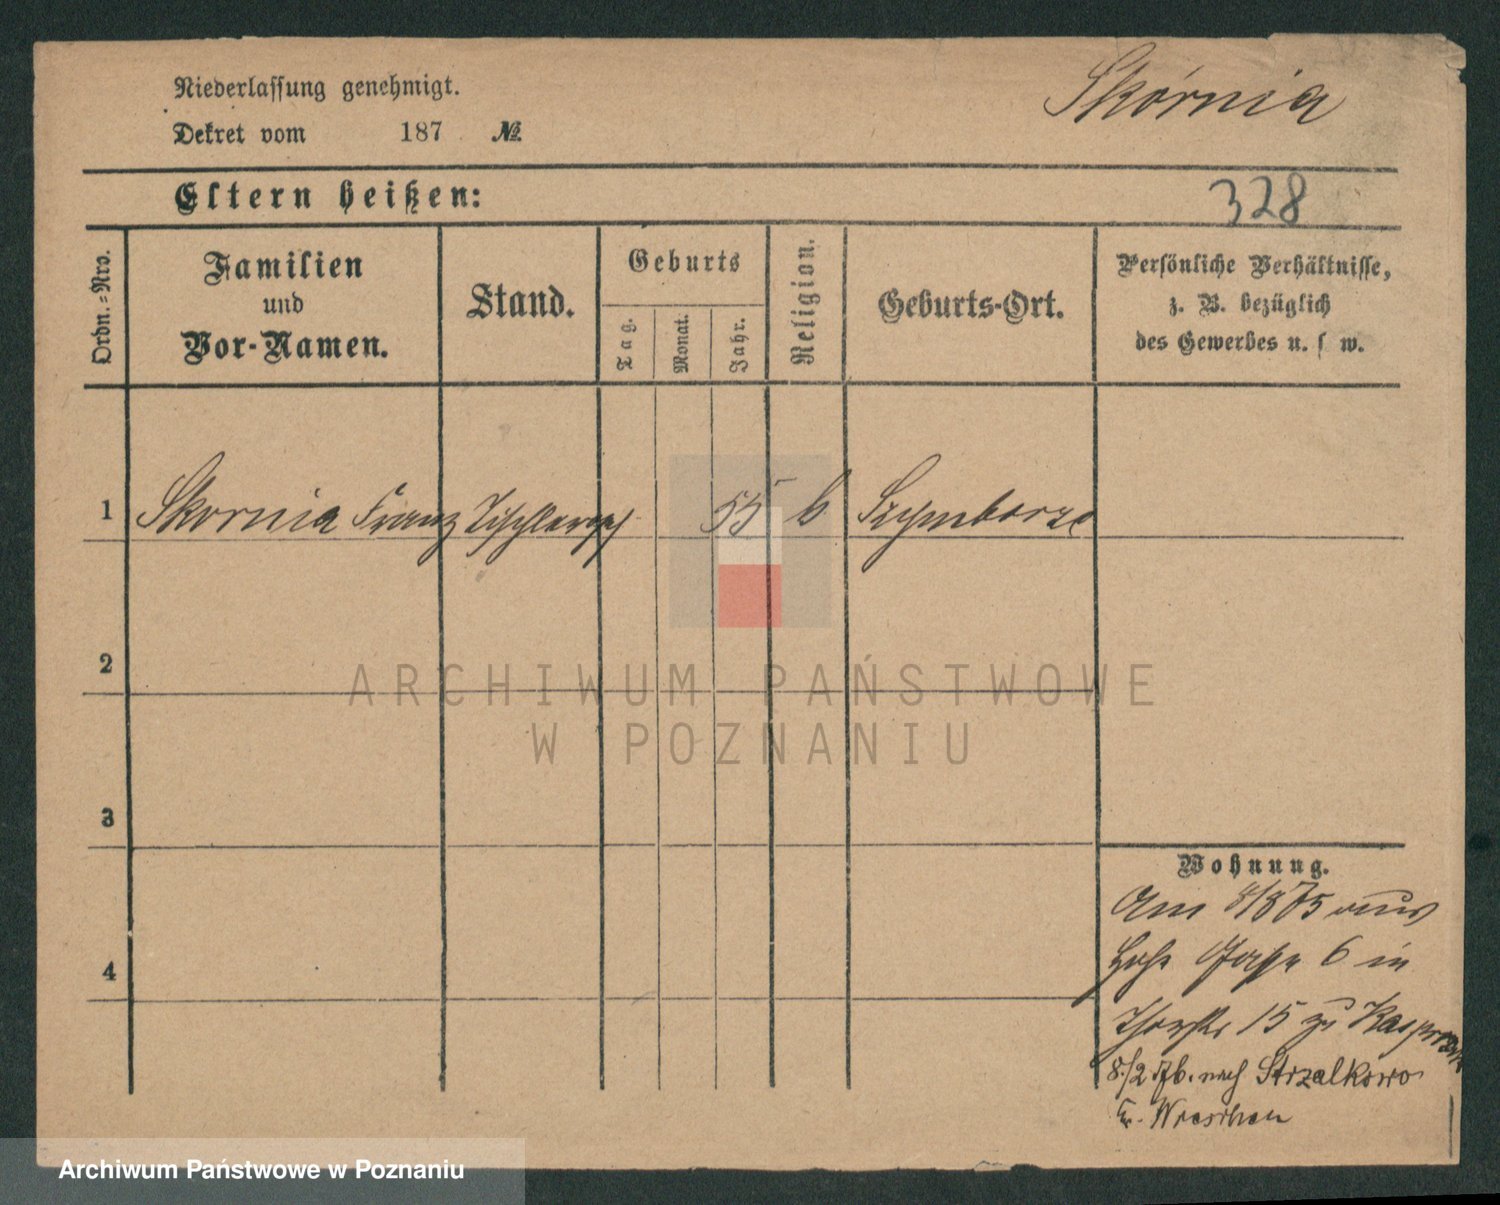 Niederlassung genehmigt.
Skórnia
Dekret vom 187 №
Eltern heißen:
328
Ordn.=Nro.
Familien
und
Vor-Namen.
Stand.
Geburts
Tag.
Monat.
Jahr.
Religion.
Geburts-Ort.
Persönliche Verhältnisse,
z. B. bezüglich
des Gewerbes u. s w.
1 Skornia Franz 55 Szymborze
2
ARCHIWUM PAŃSTWOWE
W POZNANIU
3
Wohnung.
Am 8/8 75 aus
6 in
4
15 zu
8./2 nach Strzalkowo
Kr. Wreschen
Archiwum Państwowe w Poznaniu